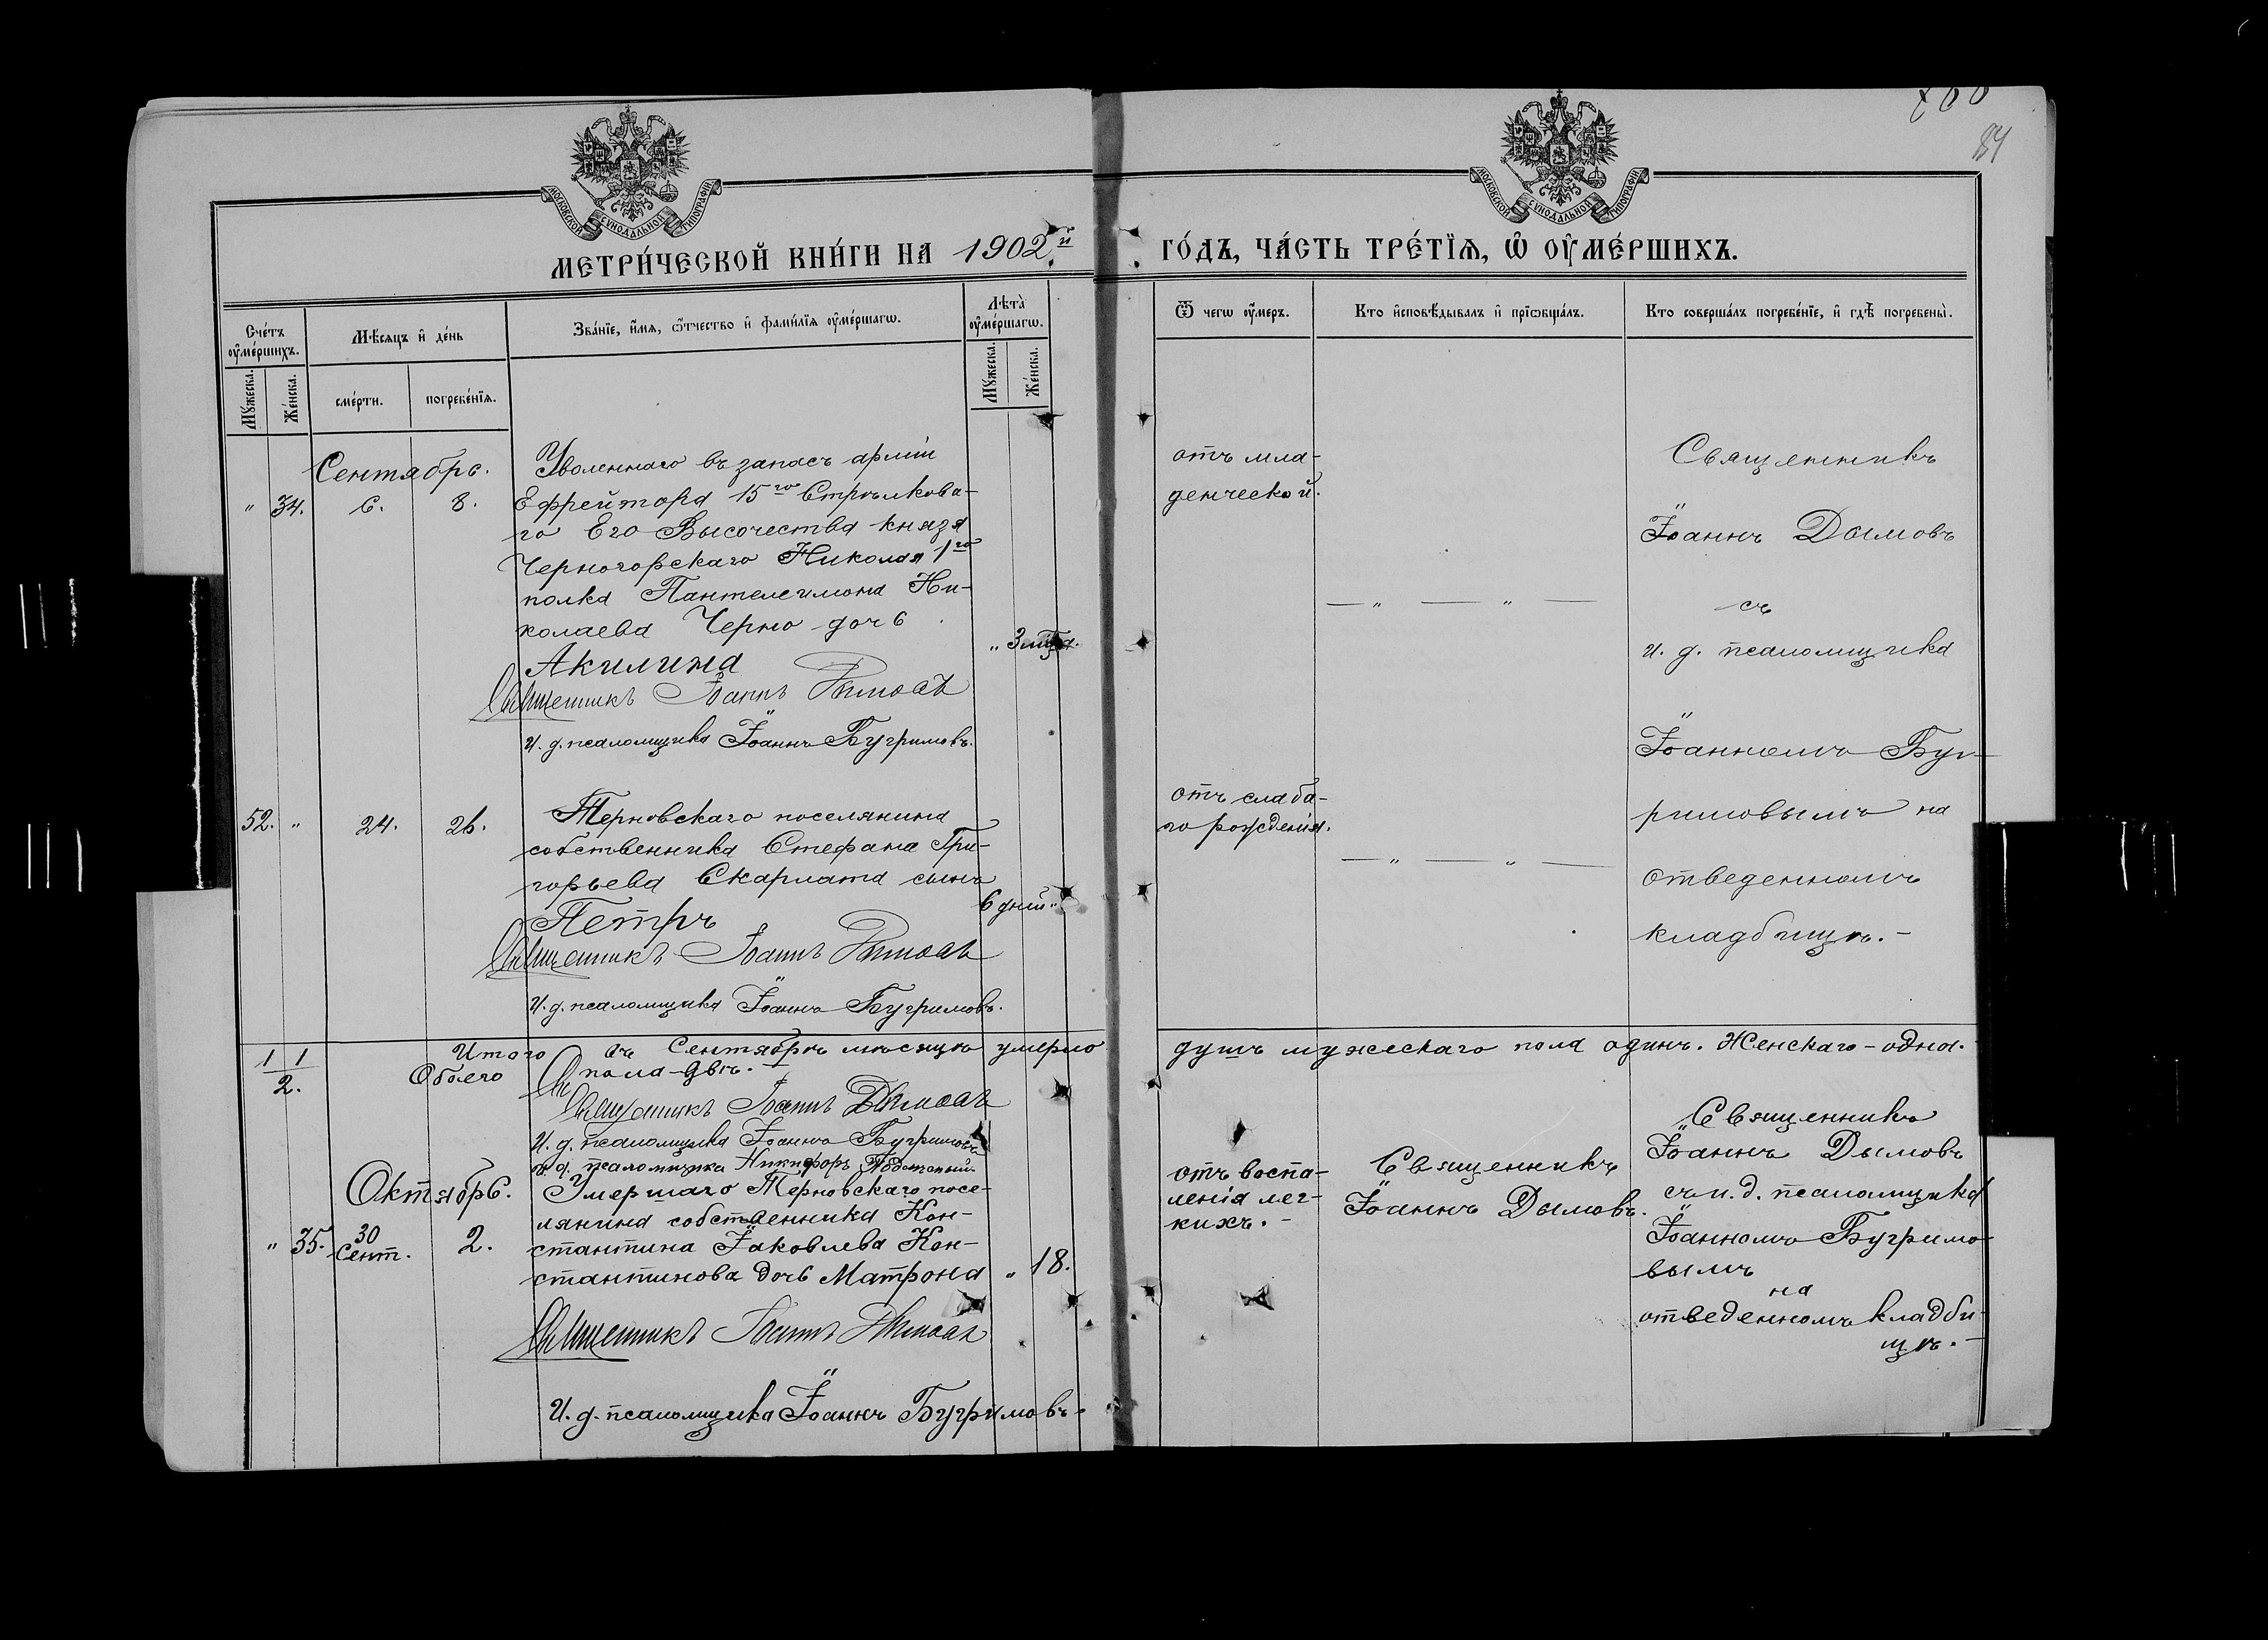 700
84
МОСКОВСКОЙ СУНОДАЛЬНОЙ ТИПОГРАФІИ
МОСКОВСКОЙ СУНОДАЛЬНОЙ ТИПОГРАФІИ
МЕТРИ́ЧЕСКОЙ КНИ́ГИ НА 1902.й ГО́ДЪ, ЧА́СТЬ ТРЕ́ТЇѦ, Ѡ҆ ОУ҆МЕ́РШИХЪ.
Сче́тъ оу҆ме́ршихъ.
Мꙋ́жеска.
Же́нска.
Мѣ́сяцъ и҆ де́нь
сме́рти.
погребе́нїѧ.
Зва́нїе, и҆́мѧ, ѻ҆́тчество и҆ фами́лїѧ оу҆ме́ршагѡ.
Лѣта̀ оу҆ме́ршагѡ.
Мꙋ́жеска.
Же́нска.
Ѿ чегѡ оу҆́меръ.
Кто и҆сповѣ́дывалъ и҆ прїѡбща́лъ.
Кто соверша́лъ погребе́нїе, и҆ гдѣ̀ погребены̀.
Сентябрь.
" 34. 6. 8.
Уволеннаго въ запасъ арміи
Ефрейтора 15го Стрѣлкова-
го Его Высочества князя
Черногорскаго Николая 1го
полка Пантелеимона Ни-
колаева Черно дочь
Акилина
" 3 мѣс.
Священникъ Іоаннъ Дымовъ
И. д. псаломщика Іоаннъ Бугримовъ.
отъ мла-
денческой.
— " — " —
Священникъ
Іоаннъ Дымовъ
съ
и. д. псаломщика
Іоанномъ Буг-
римовымъ на
отведенномъ
кладбищѣ.-
52. " 24. 26.
Терновскаго поселянина
собственника Стефана Гри-
горьева Скарлата сынъ
Петръ
6 дней "
Священникъ Іоаннъ Дымовъ
И. д. псаломщика Іоаннъ Бугримовъ.
отъ слаба-
го рожденія.
— " — " —
1 1
2.
Итого въ Сентябрѣ мѣсяцѣ умерло душъ мужескаго пола одинъ. Женскаго - одна.
Обоего пола - двѣ.
Священникъ Іоаннъ Дымовъ
И. д. псаломщика Іоаннъ Бугримовъ
и. д. псаломщика Никифоръ
Октябрь.
" 35. 30 Сент. 2.
Умершаго Терновскаго посе-
лянина собственника Кон-
стантина Іаковлева Кон-
стантинова дочь Матрона " 18.
Священникъ Іоаннъ Дымовъ
И. д. псаломщика Іоаннъ Бугримовъ-
отъ воспа-
ленія лег-
кихъ.-
Священникъ
Іоаннъ Дымовъ.
Священникъ
Іоаннъ Дымовъ
съ и. д. псаломщика
Іоанномъ Бугримо-
вымъ
на
отведенномъ кладби-
щѣ.-